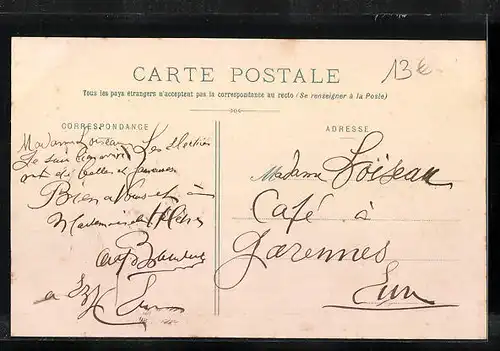 CARTE POSTALE
13€
Tous les pays étrangers n'acceptent pas la correspondance au recto (Se renseigner à la Poste)
CORRESPONDANCE
ADRESSE
Madame Loiseau Les
Je suis
ont des belles et
Bien à vous et à
Mademoiselle
a Ezy Eure
Madame Loiseau
Café à
Garennes
Eure